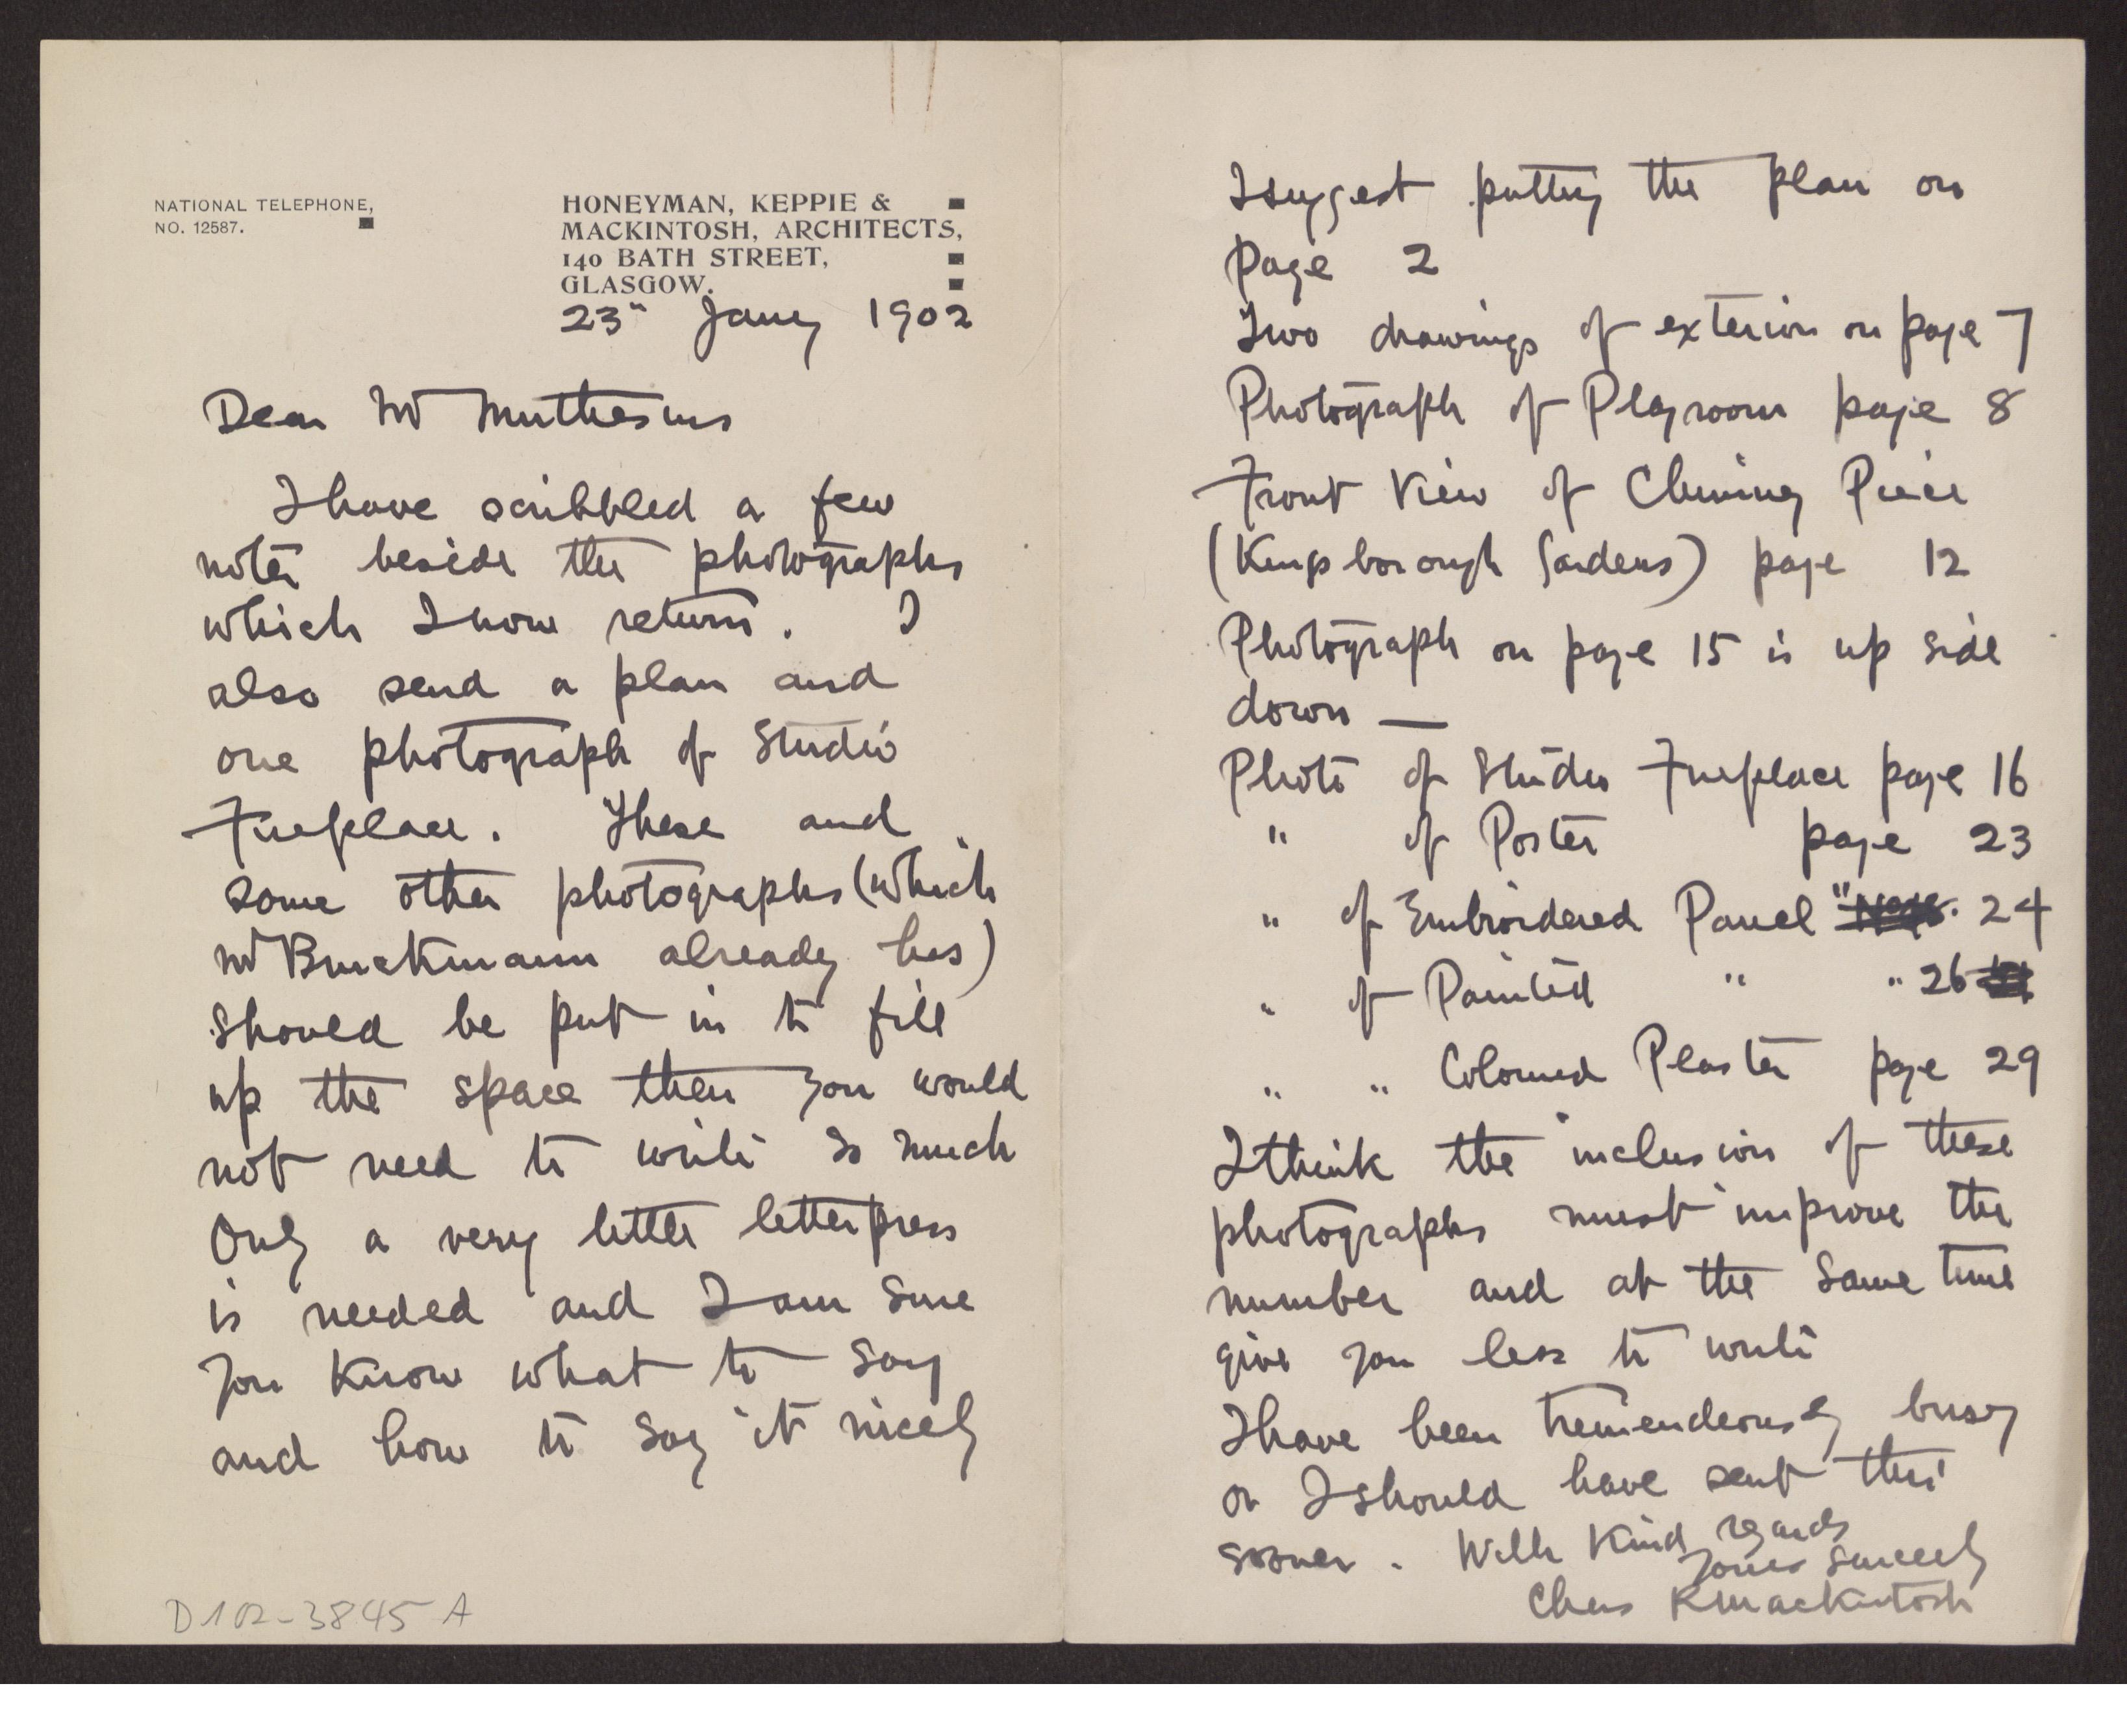 NATIONAL TELEPHONE,
NO. 12587.
HONEYMAN, KEPPIE &
MACKINTOSH, ARCHITECTS,
140 BATH STREET,
GLASGOW.
23" Jany 1902
Dear Mr Muthesius
I have scribbled a few
notes beside the photographs
which I now return. I
also send a plan and
one photograph of Studio
Fireplace. These and
some other photographs (which
Mr Bruckmann already has)
should be put in to fill
up the space then you would
not need to write so much
Only a very little letterpress
is needed and I am sure
you know what to say
and how to say it nicely
D 102-3845 A
I suggest putting the plan on
page 2
Two drawings of exterior on page 7
Photograph of Playroom page 8
Front View of Chimney Piece
(Kingsborough Gardens) page 12
Photograph on page 15 is up side
down —
Photo of Studio Fireplace page 16
" of Poster page 23
" of Embroidered Panel " 24
" of Painted " " 26
" " Coloured Plaster page 29
I think the inclusion of these
photographs must improve the
number and at the same time
give you less to write
I have been tremendously busy
or I should have sent this
sooner. With Kind regards
Yours sincerely
Chas R Mackintosh